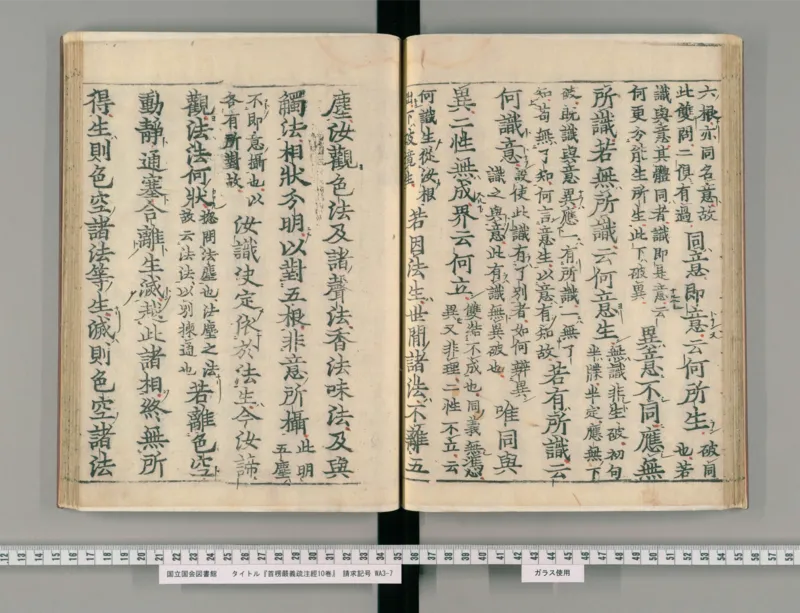 六根亦同名意故
此雙問二俱有過
同意即意云何所生
破同
也若
識與意其體同者識即是意云
何更分能生所生此下破異
異意不同應無
所識若無所識云何意生
無識非生破初句
半牒半定應無下
破既識與意異應一有所識一無了
知若無了知何言意生以意有知故
若有所識云
何識意
設使此識有了別者如何辨異
識之與意此有識無異破也
唯同與
異二性無成界云何立
雙結不成也同義無憑
異又非理二性不立云
何識生從汝根
出下破境生
若因法生世間諸法不離五
塵汝觀色法及諸聲法香法味法及與
觸法相狀分明以對五根非意所攝
此明
五塵
不即意攝也以
各有所對故
汝識決定依於法生今汝諦
觀法法何狀
總問法塵也法塵之法
故云法法以別揀通也
若離色空
動靜通塞合離生滅越此諸相終無所
得生則色空諸法等生滅則色空諸法
国立国会図書館 タイトル『首楞嚴義疏注經10巻』 請求記号 WA3-7
ガラス使用